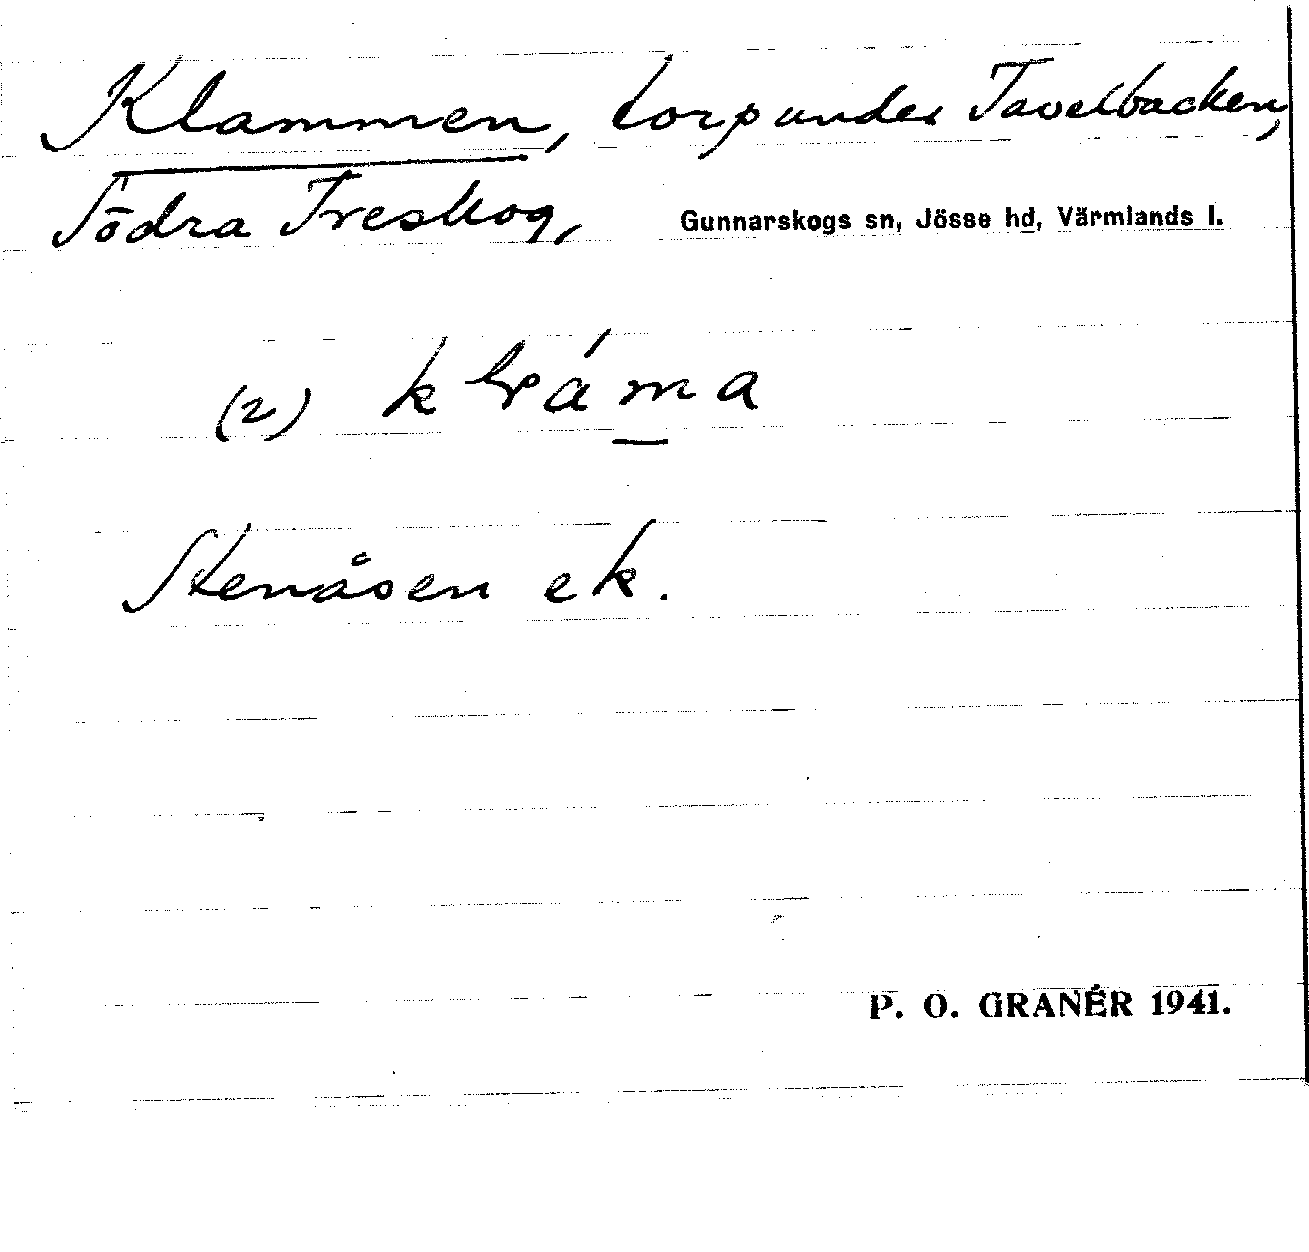 Klammen, torp under Tavelbacken,
Södra Treskog, Gunnarskogs sn, Jösse hd, Värmlands l.
(2)
Stenåsen ek.
P. O. GRANÉR 1941.